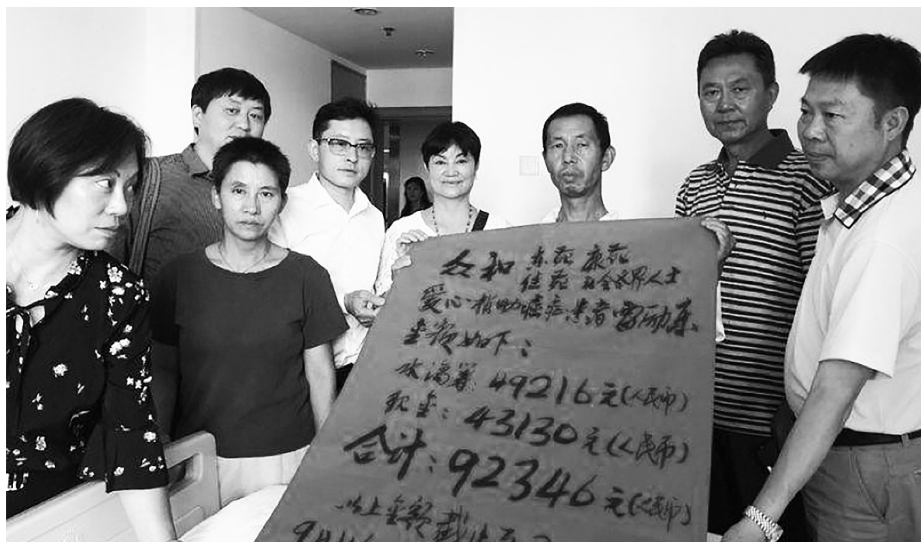 众和 东苑 康苑
佳苑 社会各界人士
爱心捐助癌症患者雷
金额如下：
水滴筹：49216元(人民币)
现金：43130元(人民币)
合计：92346元(人民币)
以上金额截